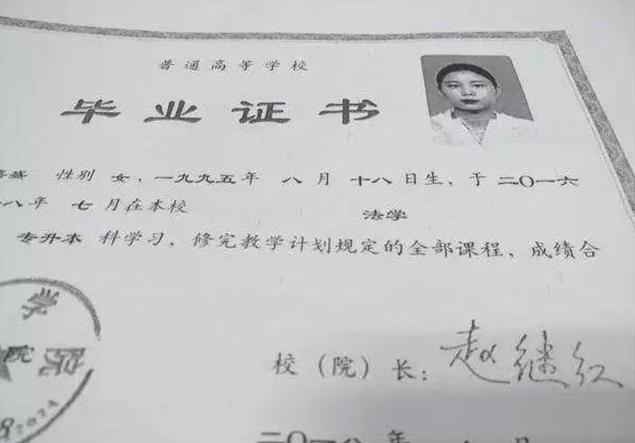 普通高等学校
毕业证书
性别 女，一九九五年 八月 十八日生，于二〇一六
八年 七月在本校 法学
专升本 科学习，修完教学计划规定的全部课程，成绩合
学
院
校（院）长：赵继红
二〇一八年